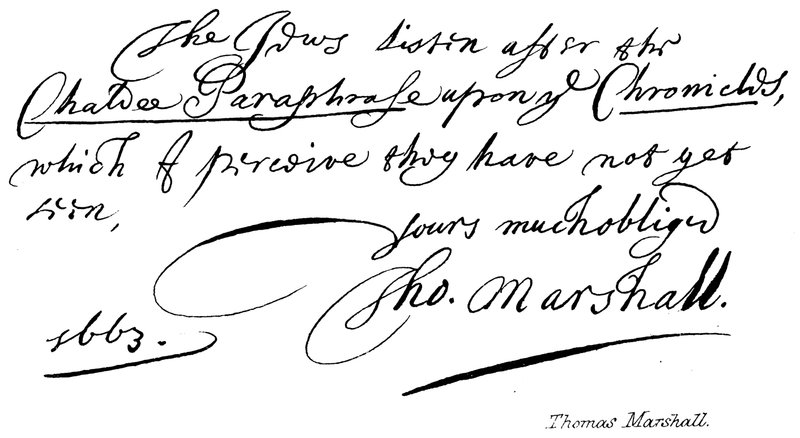 The Jews listen after the
Chaldee Paraphrase upon yᵉ Chronicles,
which I perceive they have not yet
seen,
yours much obliged
Tho. Marshall.
1663.
Thomas Marshall.